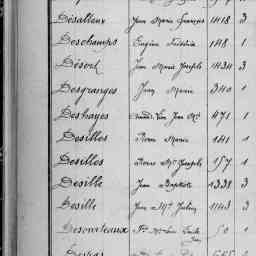 Désalleux Jean Marie François 1418 3
Deschamps Eugène Frédéric 148 1
Désert Jean Marie Joseph 1434 3
Desgranges Jean Marie 340 1
Deshayes Jean Mie 471 1
Desilles Pierre Marie 141 1
Desilles Pierre Mie Joseph 157 1
Desille Jean Baptiste 1338 3
Desille Jean Mie Julien 1143 3
Desormeaux 50 1